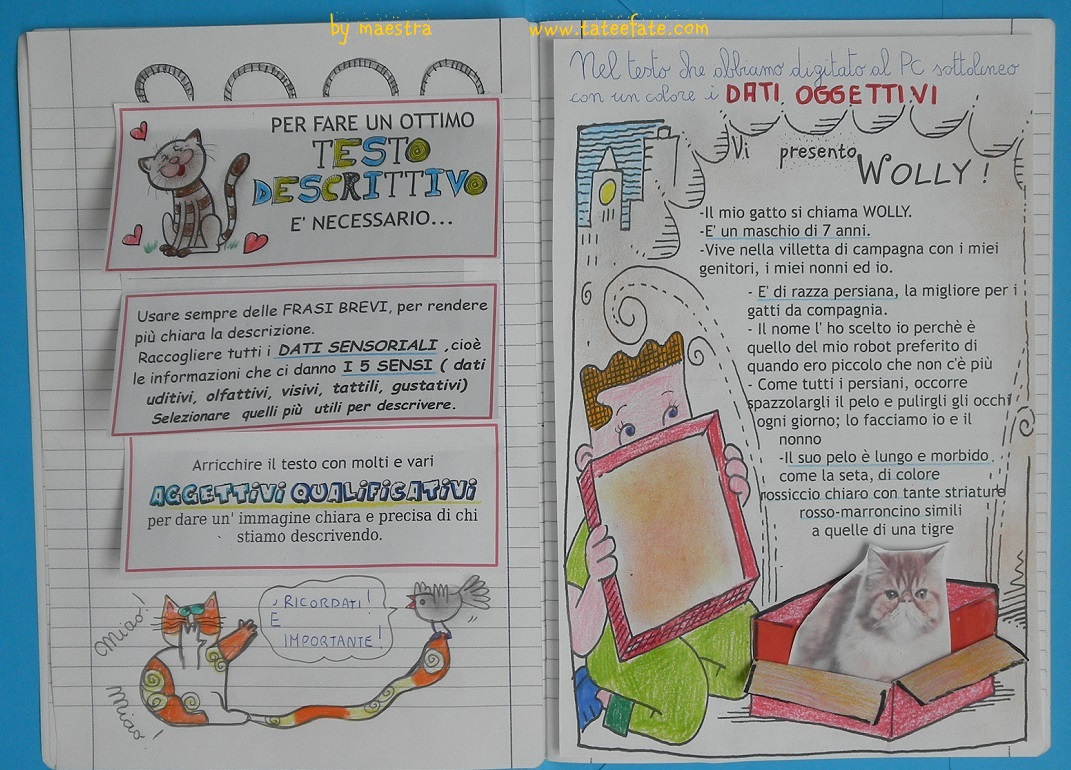 by maestra www.tateefate.com
PER FARE UN OTTIMO
TESTO
DESCRITTIVO
E' NECESSARIO...
Usare sempre delle FRASI BREVI, per rendere
più chiara la descrizione.
Raccogliere tutti i DATI SENSORIALI ,cioè
le informazioni che ci danno I 5 SENSI ( dati
uditivi, olfattivi, visivi, tattili, gustativi)
Selezionare quelli più utili per descrivere.
Arricchire il testo con molti e vari
AGGETTIVI QUALIFICATIVI
per dare un' immagine chiara e precisa di chi
stiamo descrivendo.
Miao!
Miao!
RICORDATI!
È
IMPORTANTE!
Nel testo che abbiamo digitato al PC sottolineo
con un colore i DATI OGGETTIVI
Vi presento WOLLY!
-Il mio gatto si chiama WOLLY.
-E' un maschio di 7 anni.
-Vive nella villetta di campagna con i miei
genitori, i miei nonni ed io.
- E' di razza persiana, la migliore per i
gatti da compagnia.
- Il nome l' ho scelto io perchè è
quello del mio robot preferito di
quando ero piccolo che non c'è più
- Come tutti i persiani, occorre
spazzolargli il pelo e pulirgli gli occhi
ogni giorno; lo facciamo io e il
nonno
-Il suo pelo è lungo e morbido
come la seta, di colore
rossiccio chiaro con tante striature
rosso-marroncino simili
a quelle di una tigre